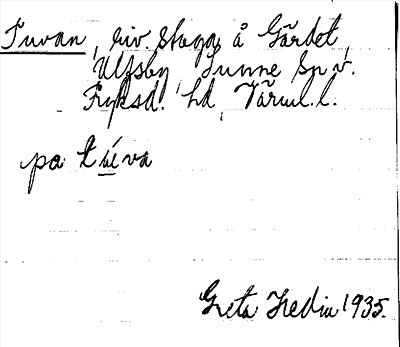 Tuvan, riv. stuga å Gärdet,
Ulfsby, Sunne sn v.
Fryksd. hd, Värml. l.
på t úva
Greta Hedin 1935.